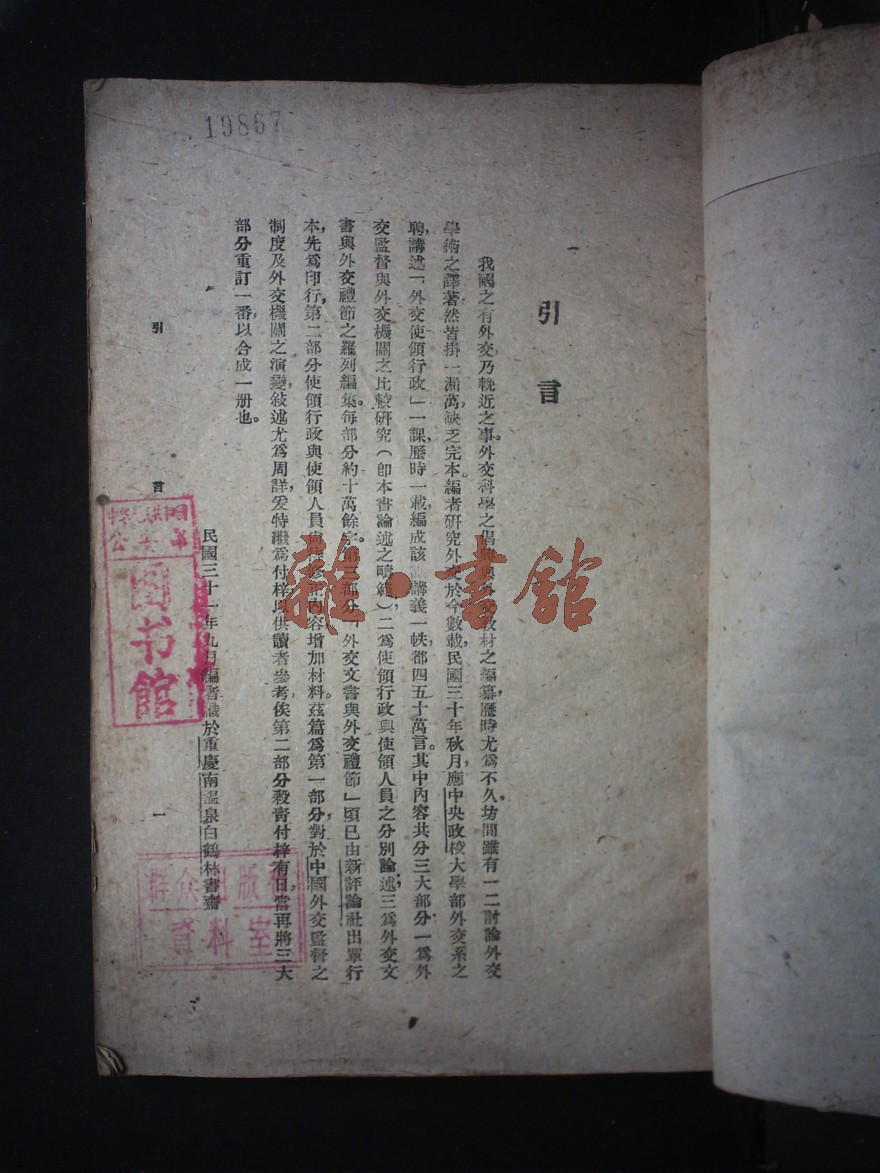 19867
引言
我國之有外交乃輓近之事。外交科學之倡與與外交教材之編纂，歷時尤爲不久。坊間雖有一二討論外交
學術之譯著，然皆掛一漏萬，缺乏完本。編者研究外交於今數載，民國三十年秋月，應中央政校大學部外交系之
聘，講述「外交使領行政」一課，歷時一載，編成該講義一帙，都四五十萬言。其中內容共分三大部分，一爲外
交監督與外交機關之比較研究（卽本書論述之疇範），二爲使領行政與使領人員之分別論述；三爲外交文
書與外交禮節之羅列編集。每部分約十萬餘字。第三部分「外交文書與外交禮節」頃已由新評論社出單行
本，先爲印行，第二部分使領行政與使領人員尙待修正內容增加材料。茲篇爲第一部分，對於中國外交監督之
制度及外交機關之演變，敍述尤爲周詳，爰特繼爲付梓，以供讀者參考，俟第二部分殺靑付梓有日，當再將三大
部分重訂一番，以合成一册也。
民國三十一年九月編者識於重慶南溫泉白鶴林書齋
引言
一
图书馆
群众出版社
資料室
雜·書館